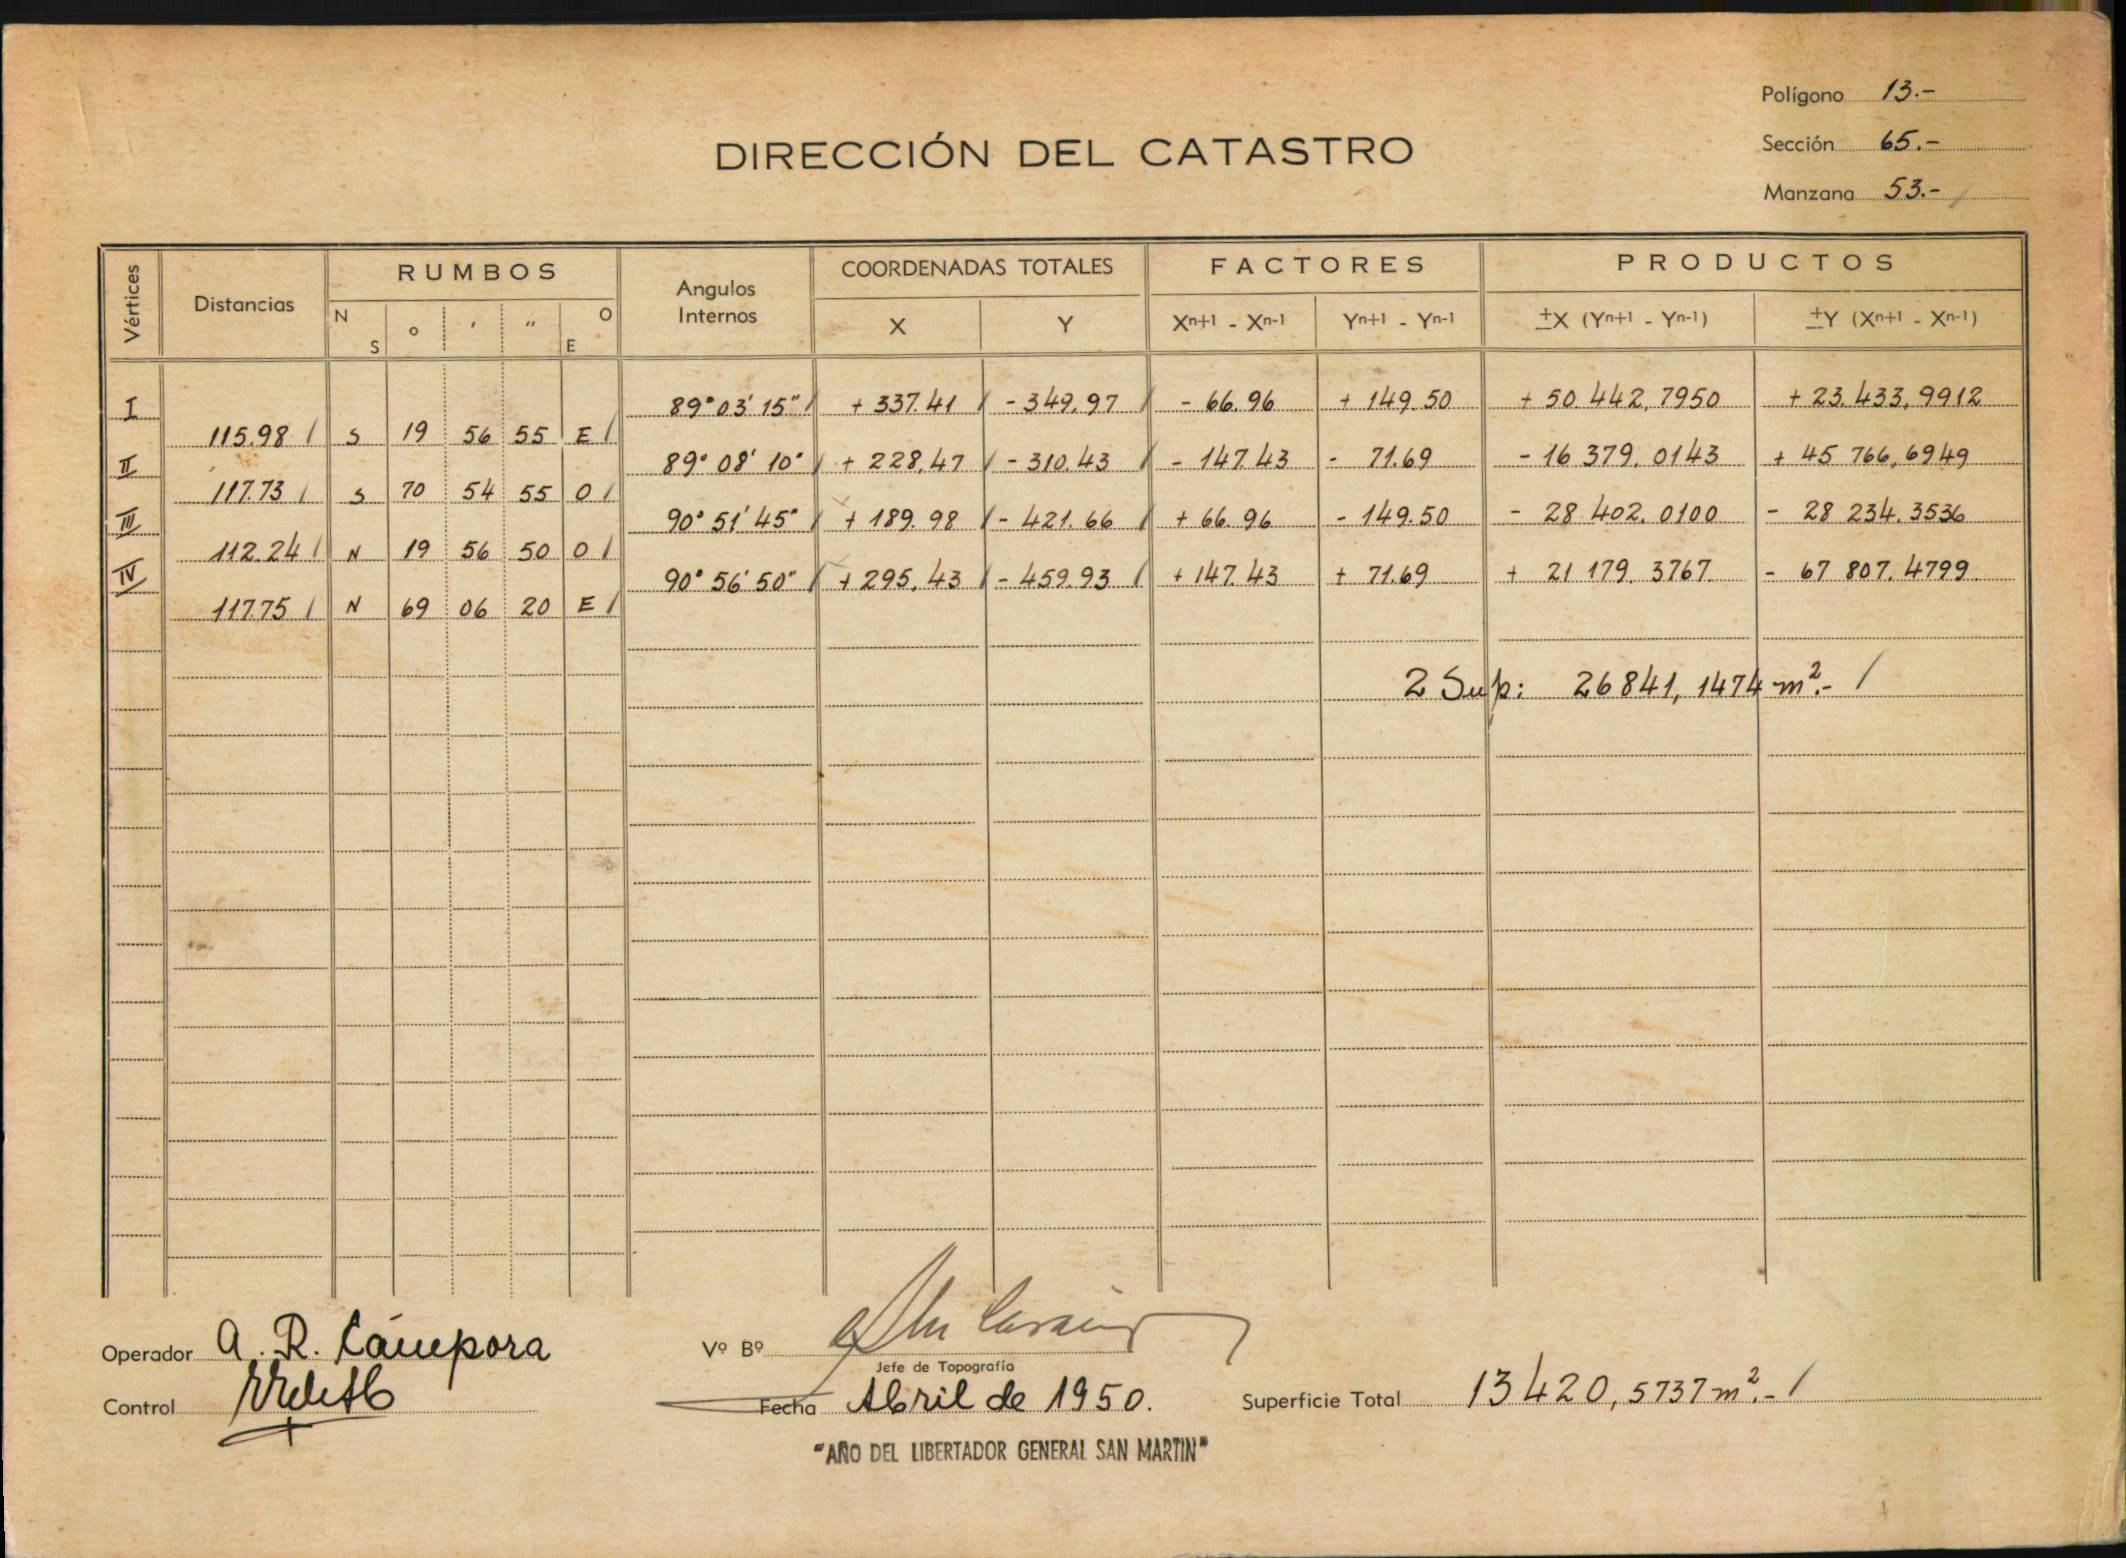 Polígono 13.-
DIRECCIÓN DEL CATASTRO
Sección 65.-
Manzana 53.-
Vértices Distancias RUMBOS Angulos Internos COORDENADAS TOTALES FACTORES PRODUCTOS
N S ° ' " O E X Y Xn+1 - Xn-1 Yn+1 - Yn-1 ±X (Yn+1 - Yn-1) ±Y (Xn+1 - Xn-1)
I 89° 03' 15" / + 337.41 / - 349,97 / - 66.96 + 149.50 + 50.442,7950 + 23.433,9912
115.98 / S 19 56 55 E /
II 89° 08' 10" / + 228,47 / - 310.43 / - 147.43 - 71.69 - 16 379.0143 + 45 766,6949
117.73 / S 70 54 55 O /
III 90° 51' 45" / + 189.98 / - 421.66 / + 66.96 - 149.50 - 28 402.0100 - 28 234.3536
112.24 / N 19 56 50 O /
IV 90° 56' 50" / + 295,43 / - 459.93 / + 147.43 + 71.69 + 21 179.3767 - 67 807.4799
117.75 / N 69 06 20 E /
2 Sup: 26841,1474 m².- /
Operador A. R. Cámpora
Vº Bº
Jefe de Topografía
Control
Fecha Abril de 1950.
Superficie Total 13420,5737 m².- /
"AÑO DEL LIBERTADOR GENERAL SAN MARTIN"